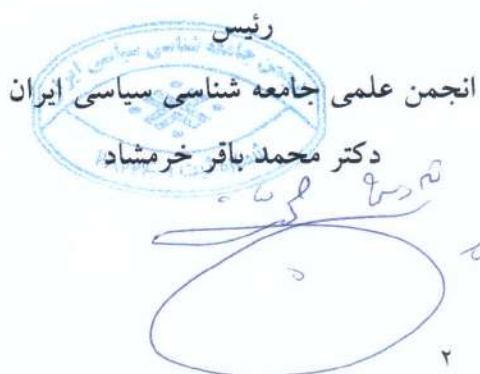 رئیس
انجمن علمی جامعه شناسی سیاسی ایران
دکتر محمد باقر خرمشاد
۲